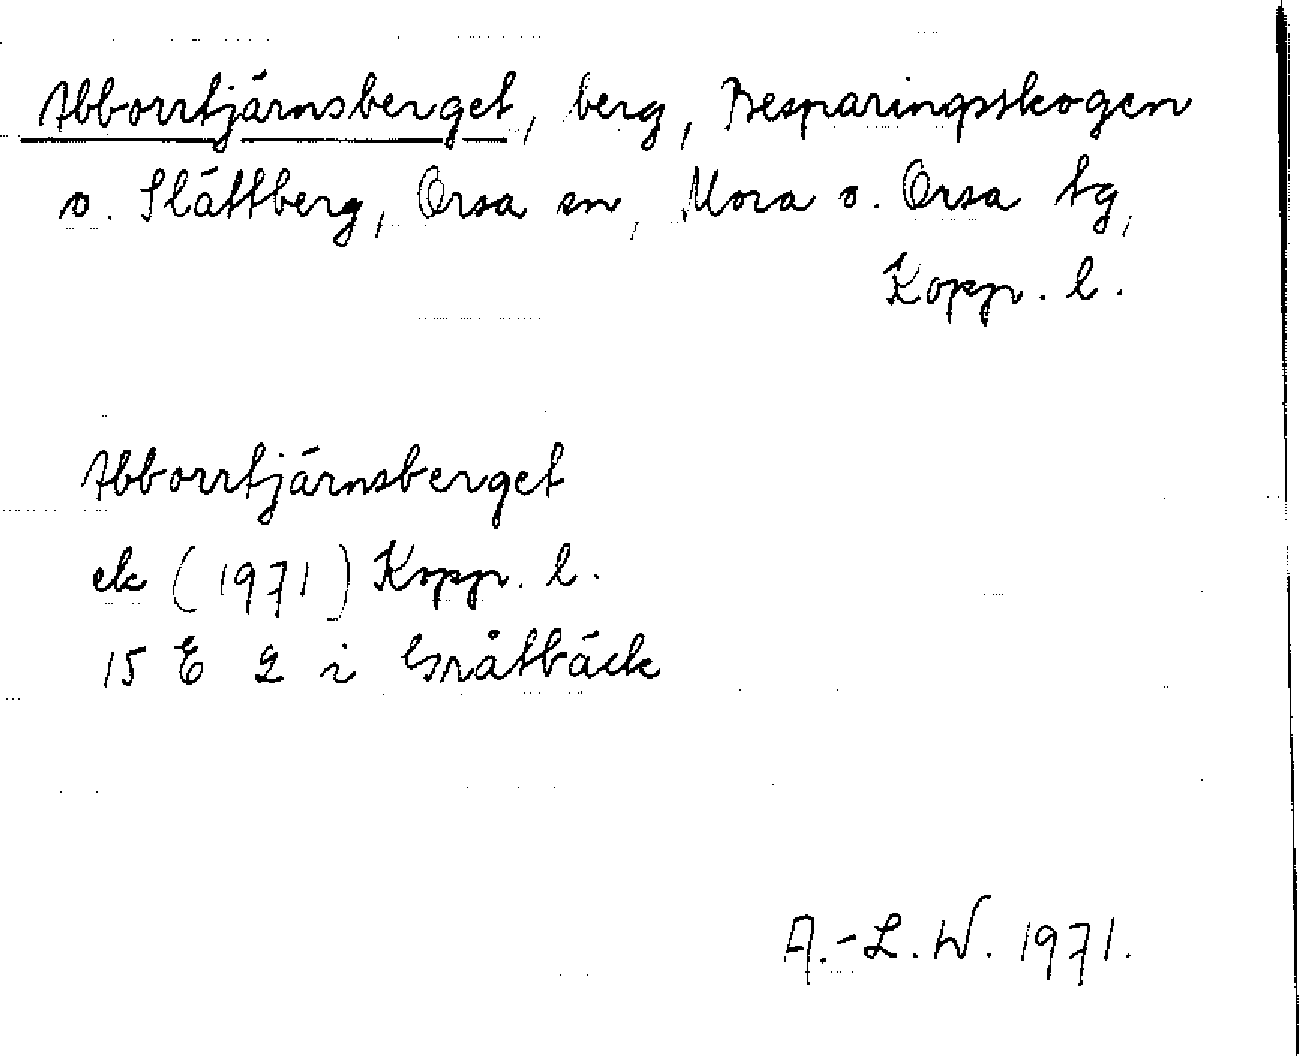 Abborrtjärnsberget, berg, Besparingsskogen
o. Slättberg, Orsa sn, Mora o. Orsa tg,
Kopp. l.
Abborrtjärnsberget
ek (1971) Kopp. l.
15 E 2 i Gråtbäck
A.-L. W. 1971.